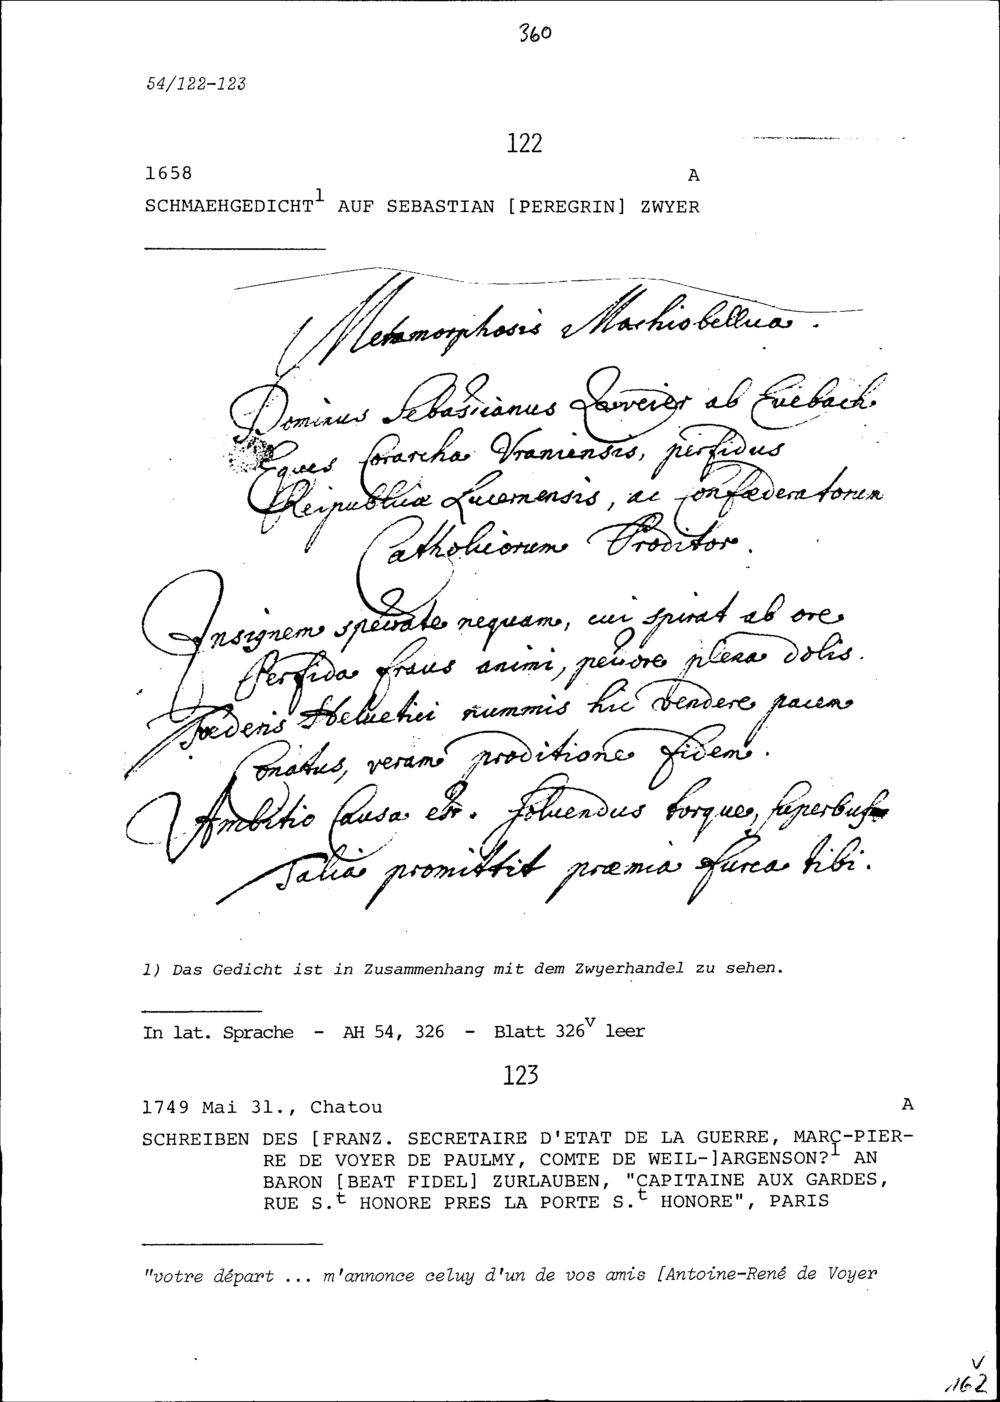 360
54/122-123
122
1658 A
SCHMAEHGEDICHT1 AUF SEBASTIAN [PEREGRIN] ZWYER
Metamorphosis Machiobellua.
Dominus Sebastianus Zweier ab Euebach
Eques Corarcha Vraniensis, perfidus
Reipublicæ Lucernensis, ac confœderatorum
Catholicorum Proditor.
Insignem spectate nequam, cui spirat ab ore
Perfida fraus animi, pectore plena dolis.
Fœderis Heluetici nummis hic vendere pacem
Conatus, veram proditione fidem.
Ambitio Causa est. Soluendus torque, superbus
Talia promittit præmia furca tibi.
1) Das Gedicht ist in Zusammenhang mit dem Zwyerhandel zu sehen.
In lat. Sprache - AH 54, 326 - Blatt 326v leer
123
1749 Mai 31., Chatou A
SCHREIBEN DES [FRANZ. SECRETAIRE D'ETAT DE LA GUERRE, MARC-PIER-
RE DE VOYER DE PAULMY, COMTE DE WEIL-]ARGENSON?1 AN
BARON [BEAT FIDEL] ZURLAUBEN, "CAPITAINE AUX GARDES,
RUE S.t HONORE PRES LA PORTE S.t HONORE", PARIS
"votre départ ... m'annonce celuy d'un de vos amis [Antoine-René de Voyer
v
162